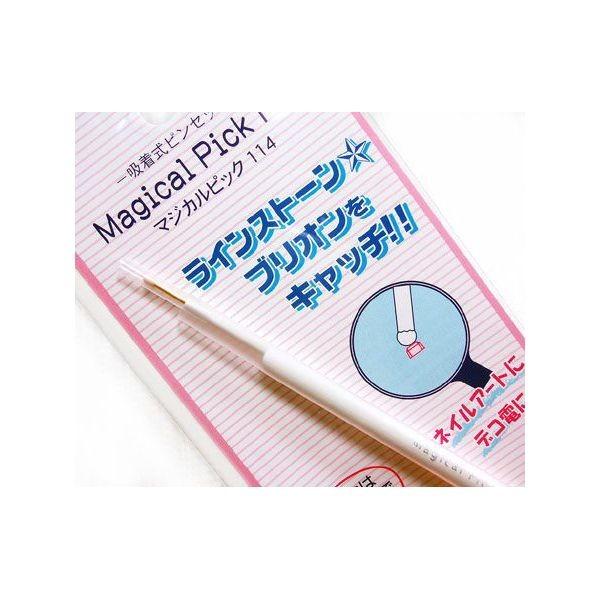 吸着式ピンセッ
Magical Pick
マジカルピック 114
ラインストーン☆
ブリオンを
キャッチ!!!
ネイルアートに
デコ電に
Magical